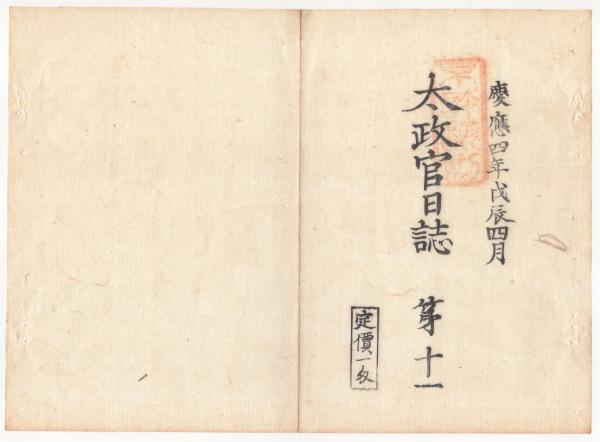 慶應四年戊辰四月
太政官日誌 第十一
定價一匁